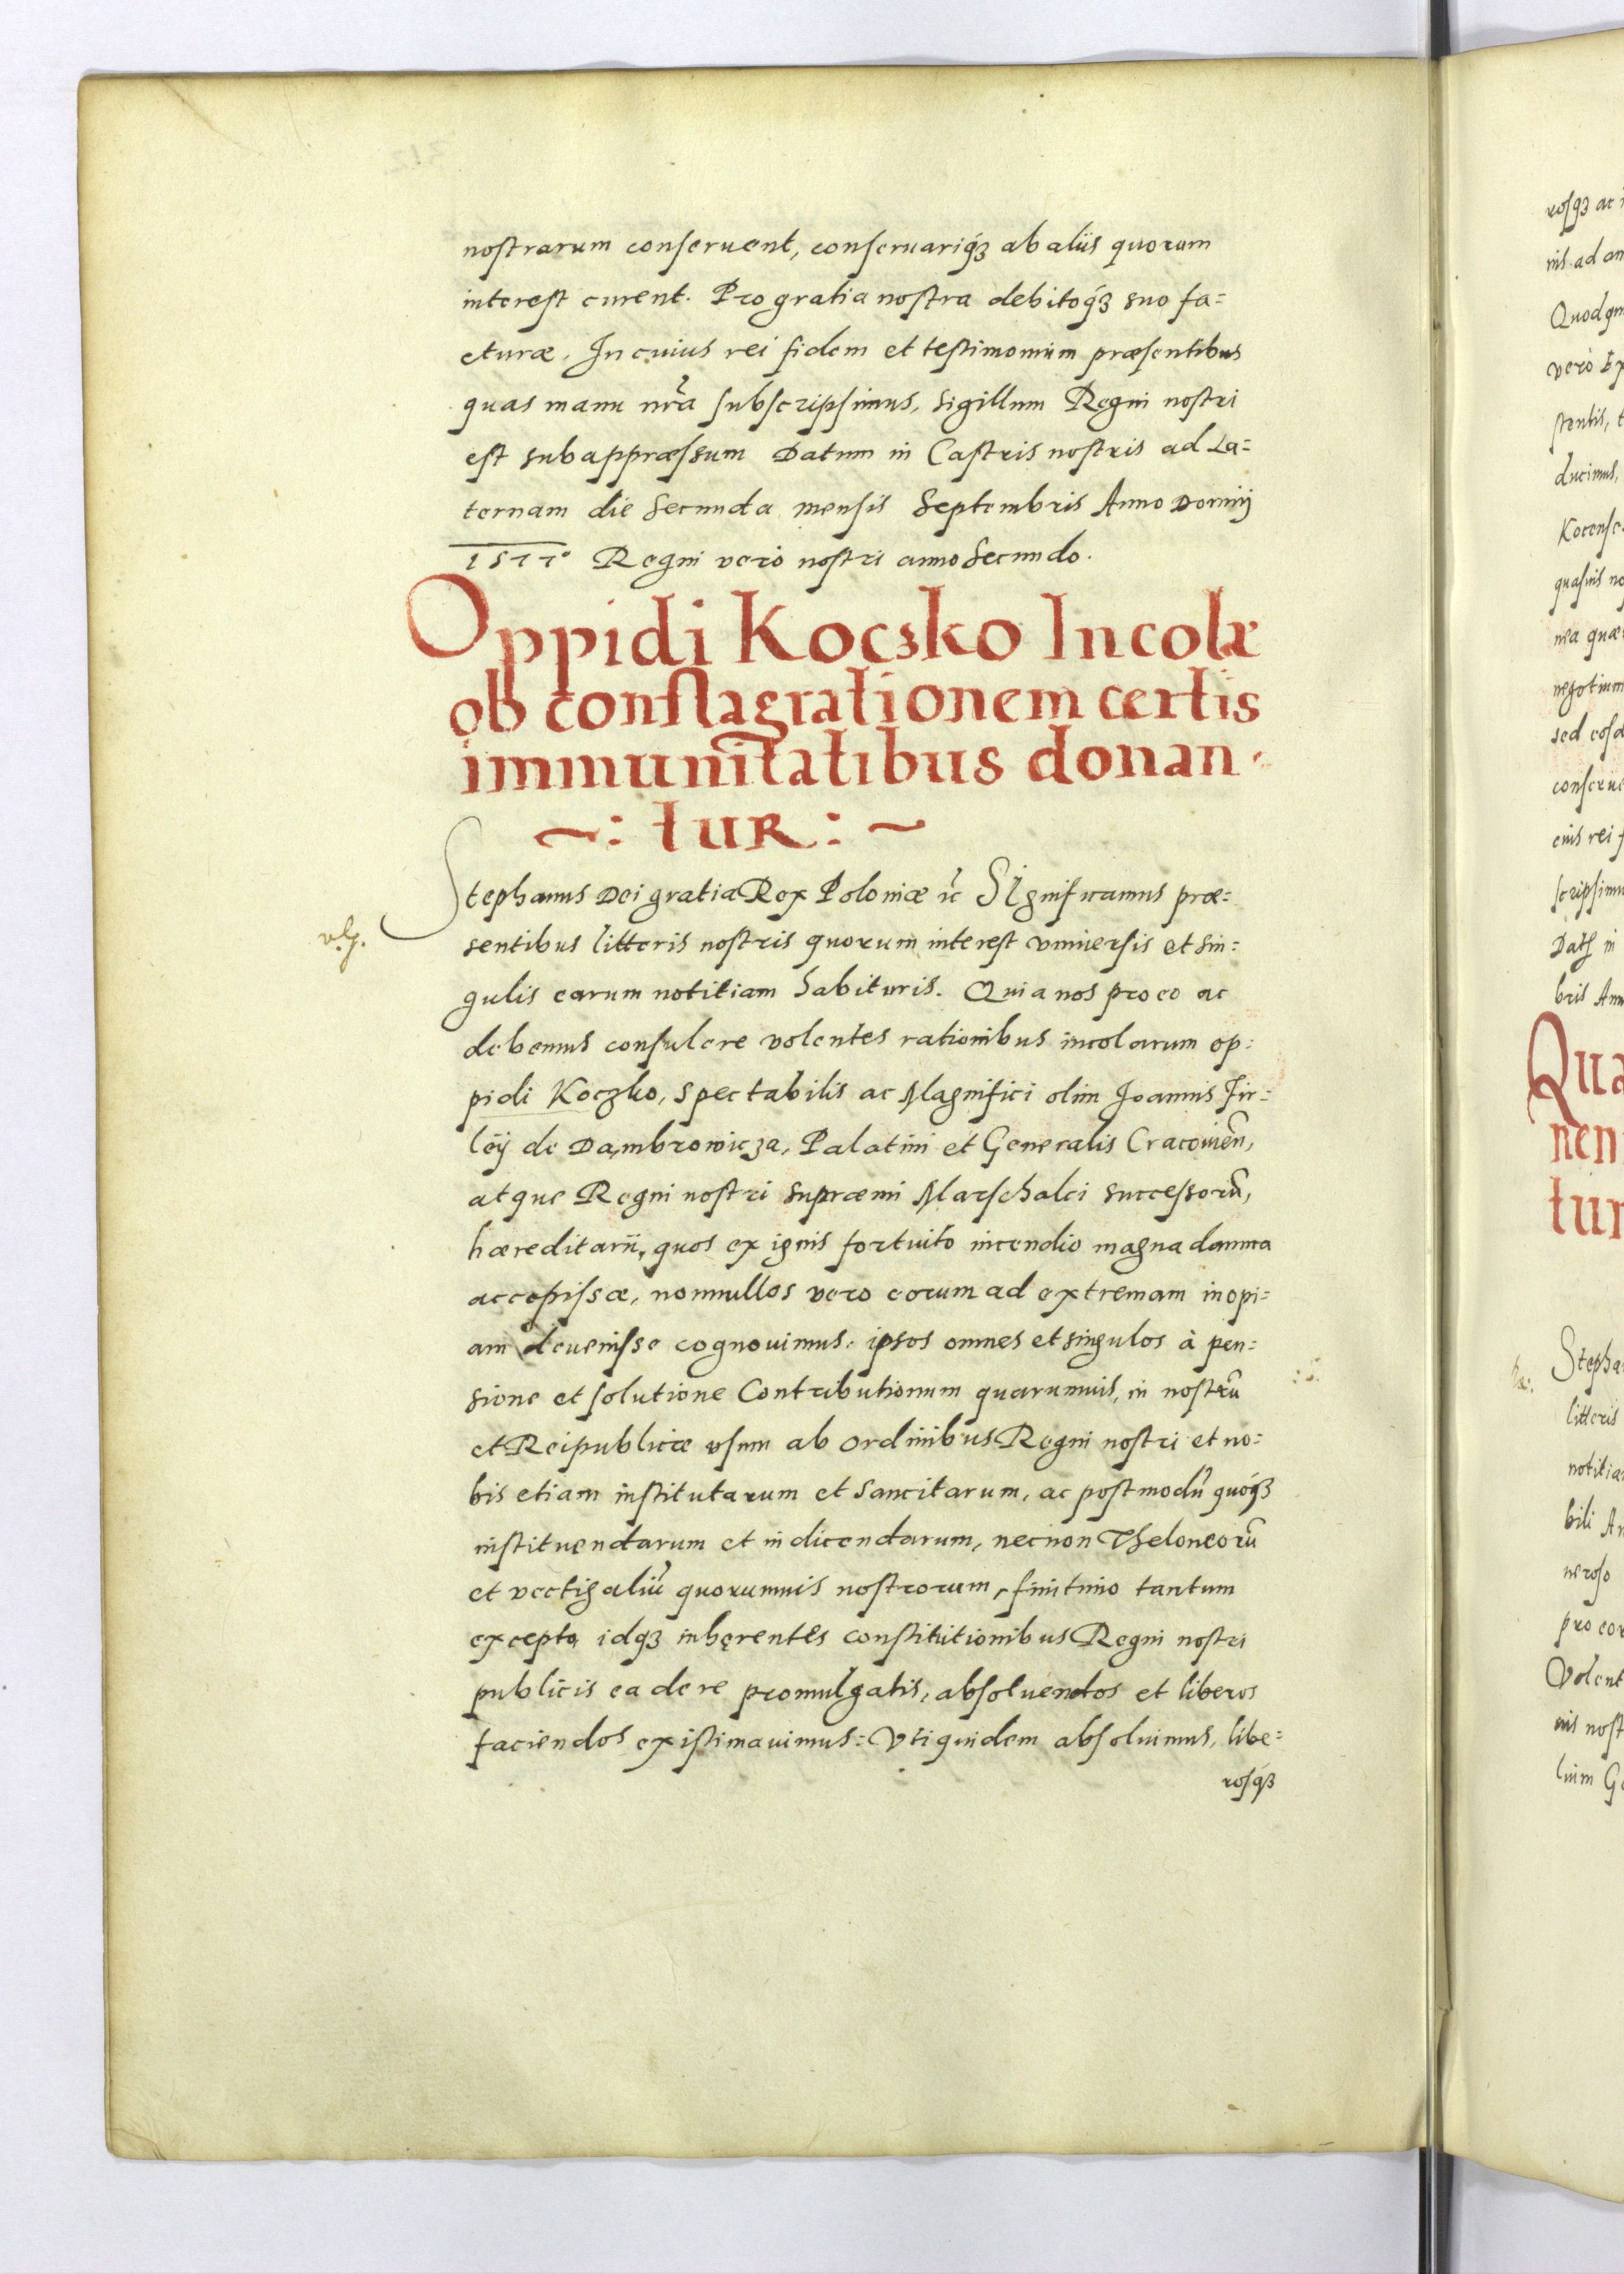 nostrarum conseruent, conseruariq́ꝫ ab aliis quorum
interest curent. Pro gratia nostra debitoq́ꝫ suo fa=
cturæ. In cuius rei fidem et testimonium præsentibus
quas manu nr̃a subscripsimus, sigillum Regni nostri
est subappræssum Datum in Castris nostris ad La=
ternam die Secunda mensis Septembris Anno Dominj
1577° Regni verò nostri anno Secundo.
Oppidi Kocsko Incolæ
ob conflagrationem certis
immunitatibus donan
~: tur: ~
Stephanus Dei gratia Rex Poloniæ ic̃ SIgnificamus præ=
sentibus litteris nostris quorum interest vniuersis et sin=
gulis earum notitiam habituris. Quia nos pro eo ac
debemus consulere volentes rationibus incolarum op=
pidi Koczko, spectabilis ac Magnifici olim Joannis Fir=
leÿ de Dambrowicza, Palatini et Generalis Cracouien̄,
atque Regni nostri supræmi Marschalci successorū,
hæreditarii, quos ex ignis fortuito incendio magna damna
accepissæ, nonnullos vero eorum ad extremam inopi=
am deuenisse cognouimus. ipsos omnes et singulos à pen=
sione et solutione Contributionum quarumuis, in nostrū
et Reipublicæ vsum ab ordinibus Regni nostri et no=
bis etiam institutarum et sancitarum, ac postmodū quoq́ꝫ
instituendarum et indicendarum, necnon Theloneorū
et vectigaliū quorumuis nostrorum, finitimo tantum
excepto idqꝫ inhęrentes constitutionibus Regni nostri
publicis ea de re promulgatis, absoluendos et liberos
faciendos existimauimus: Vti quidem absoluimus, libe=
rosq́ꝫ
rosqꝫ ac
nis ad
Quod
vero
stentis,
ducimus,
quasuis
quæ
negotium
sed
cuius rei
in
bris
Qua
nen
tur
litteris
bili
neroso
pro
nost